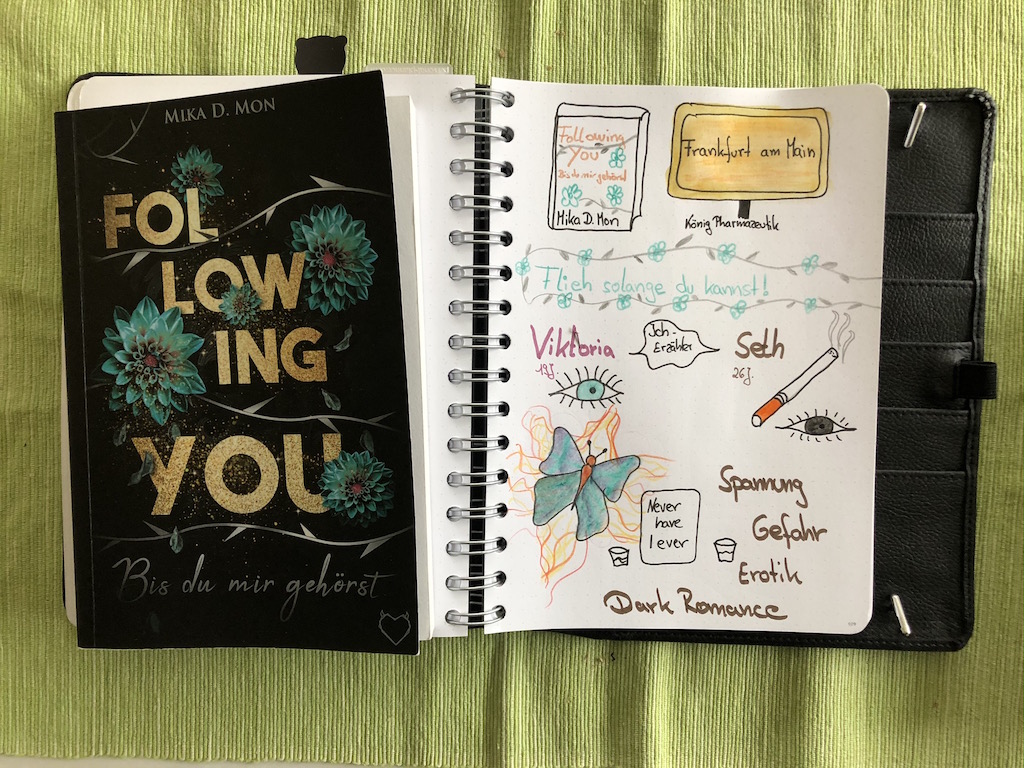 MIKA D. MON
FOL
LOW
ING
YOU
Bis du mir gehörst
Following
You
Bis du mir gehörst
Mika D. Mon
Frankfurt am Main
König Pharmazeutik
Flieh solange du kannst!
Viktoria
19J.
Ich-
Erzähler
Seth
26J.
Never
have
I ever
Spannung
Gefahr
Erotik
Dark Romance